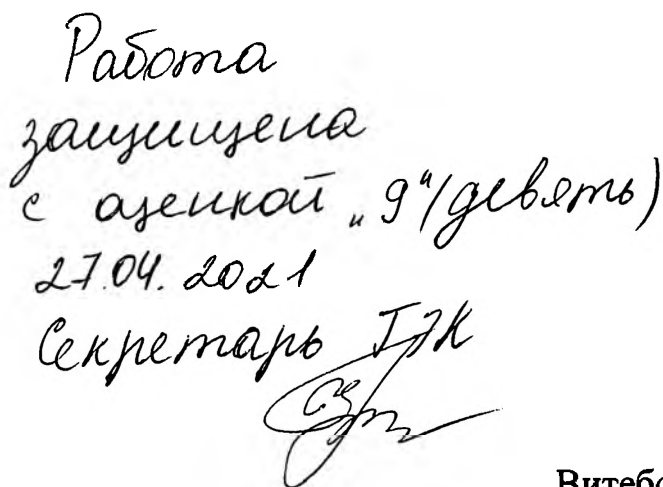 Работа
защищена
с оценкой „9“ (девять)
27.04.2021
Секретарь ГЭК
Витебс